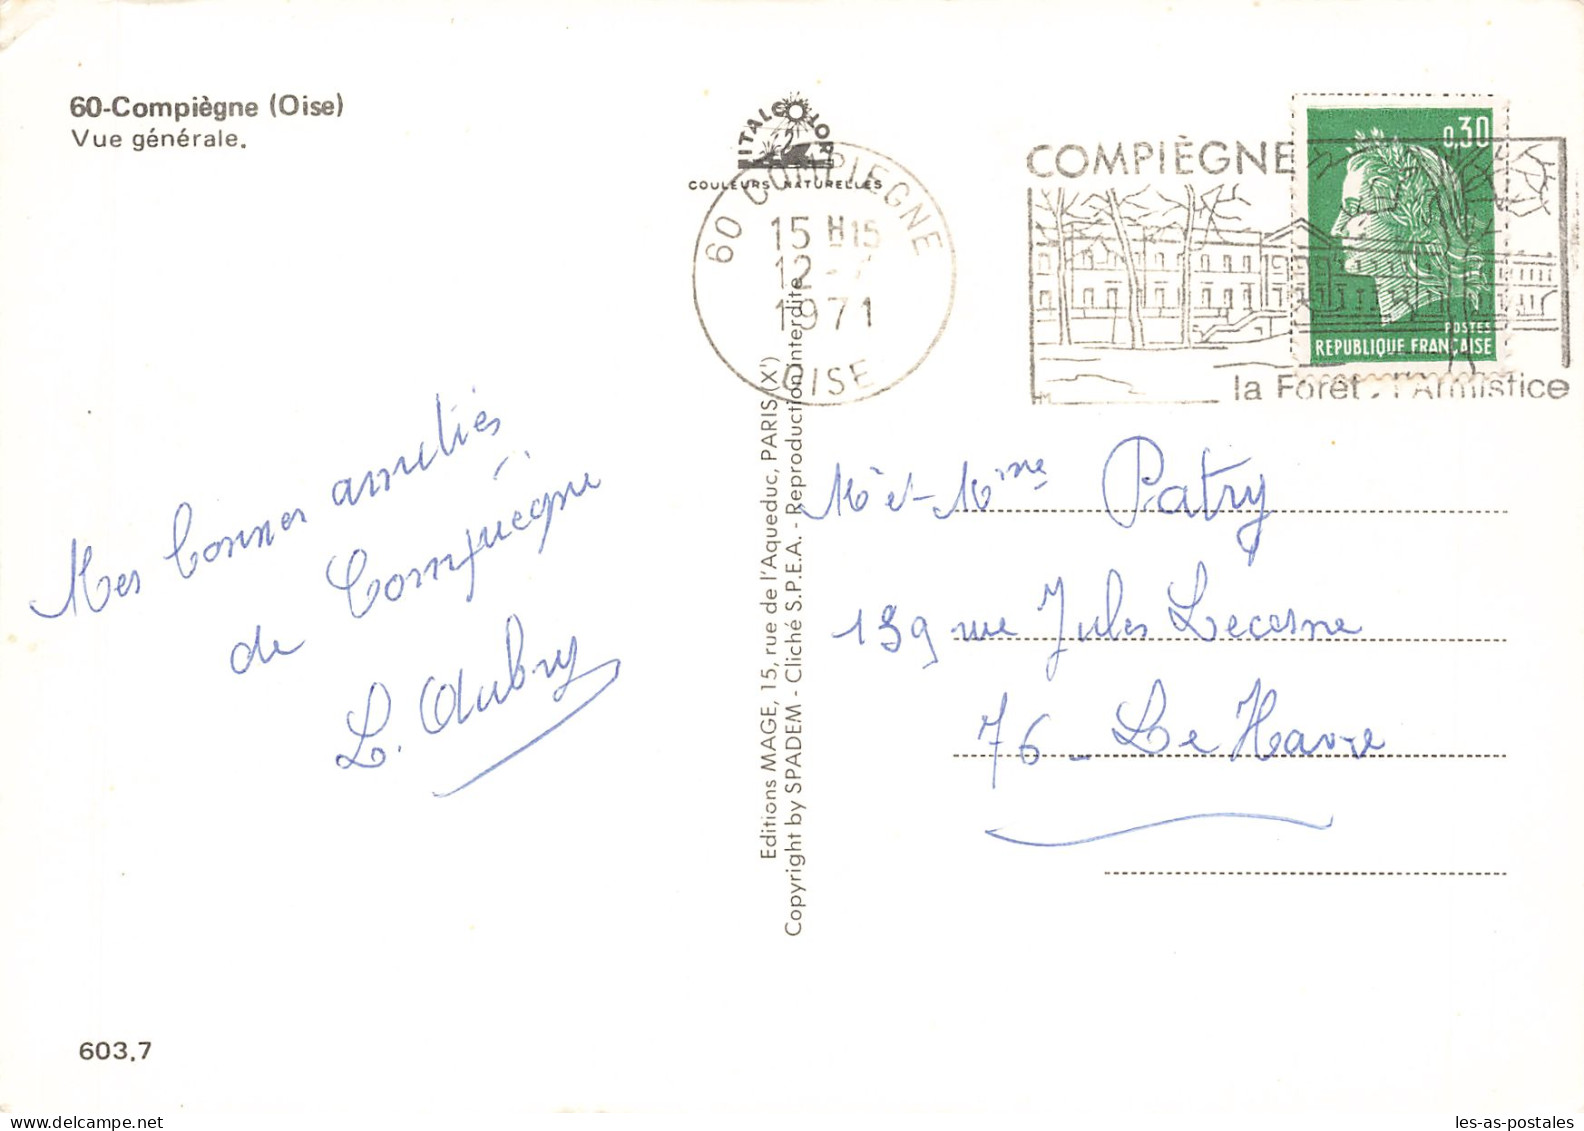 60-Compiègne (Oise)
Vue générale.
ITALCOLOR
COULEURS NATURELLES
60 COMPIEGNE
15 H15
12 -7
1971
OISE
COMPIÈGNE
la Forêt, l'Armistice
0,30
POSTES
REPUBLIQUE FRANÇAISE
Mes bonnes amitiés
de Compiègne
L. Aubry
Editions MAGE, 15, rue de l'Aqueduc, PARIS (X')
Copyright by SPADEM - Cliché S.P.E.A. - Reproduction interdite
Mr et Mme Patry
139 rue Jules Lecesne
76 - Le Havre
603,7
les-as-postales